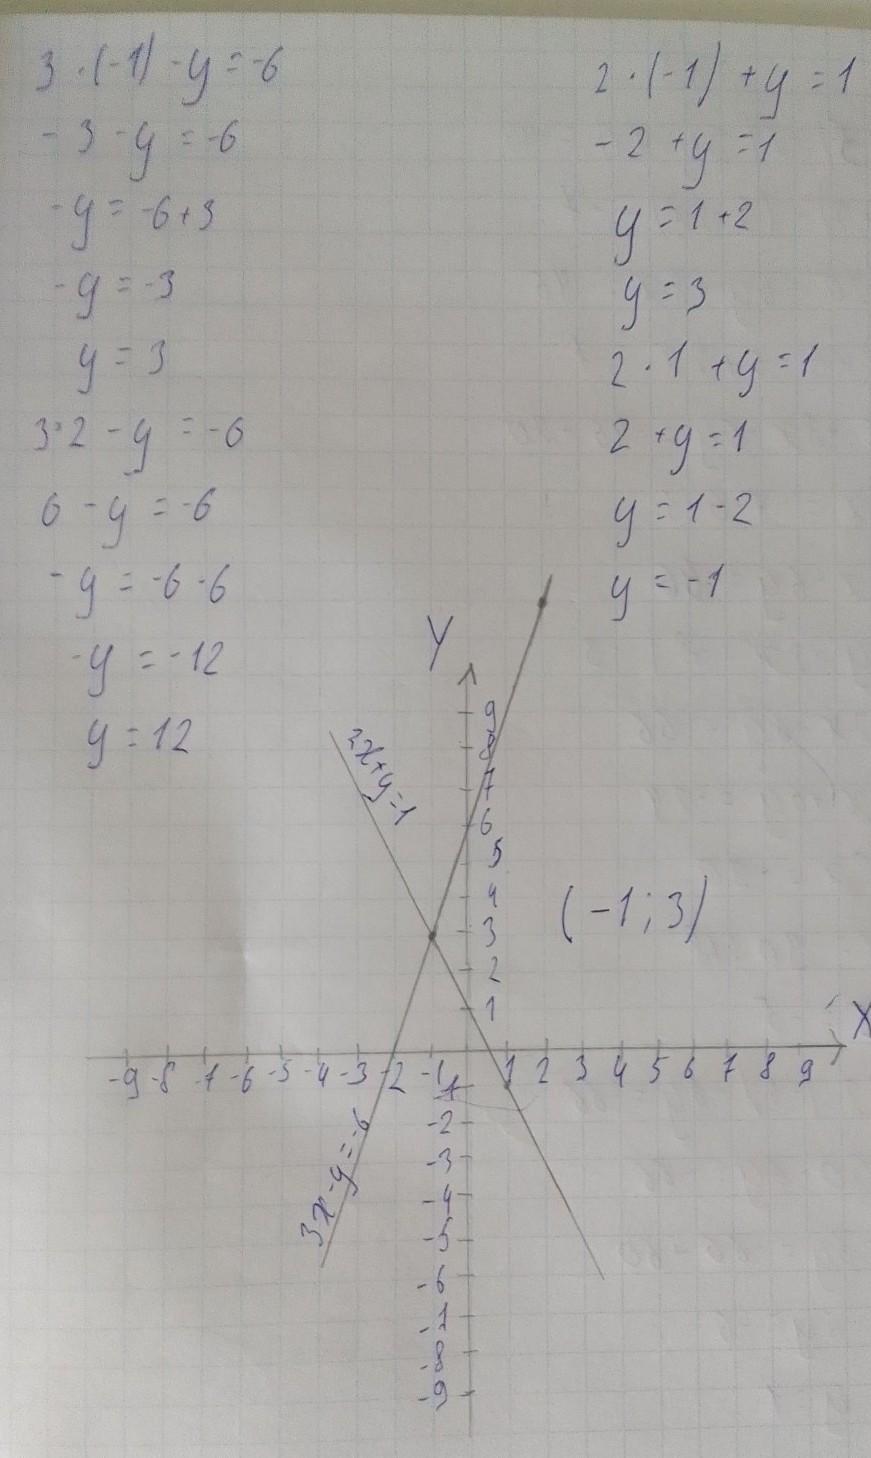 3·(-1) -y = -6
-3 -y = -6
-y = -6+3
-y = -3
y = 3
3·2 -y = -6
6 -y = -6
-y = -6 -6
-y = -12
y = 12
2·(-1) +y = 1
-2 +y = 1
y = 1+2
y = 3
2·1 +y = 1
2 +y = 1
y = 1-2
y = -1
Y
9
8
7
6
5
4
3
2
1
2x+y=1
(-1; 3)
X
-9 -8 -7 -6 -5 -4 -3 -2 -1 1 2 3 4 5 6 7 8 9
-1
-2
-3
-4
-5
-6
-7
-8
-9
3x-y=-6